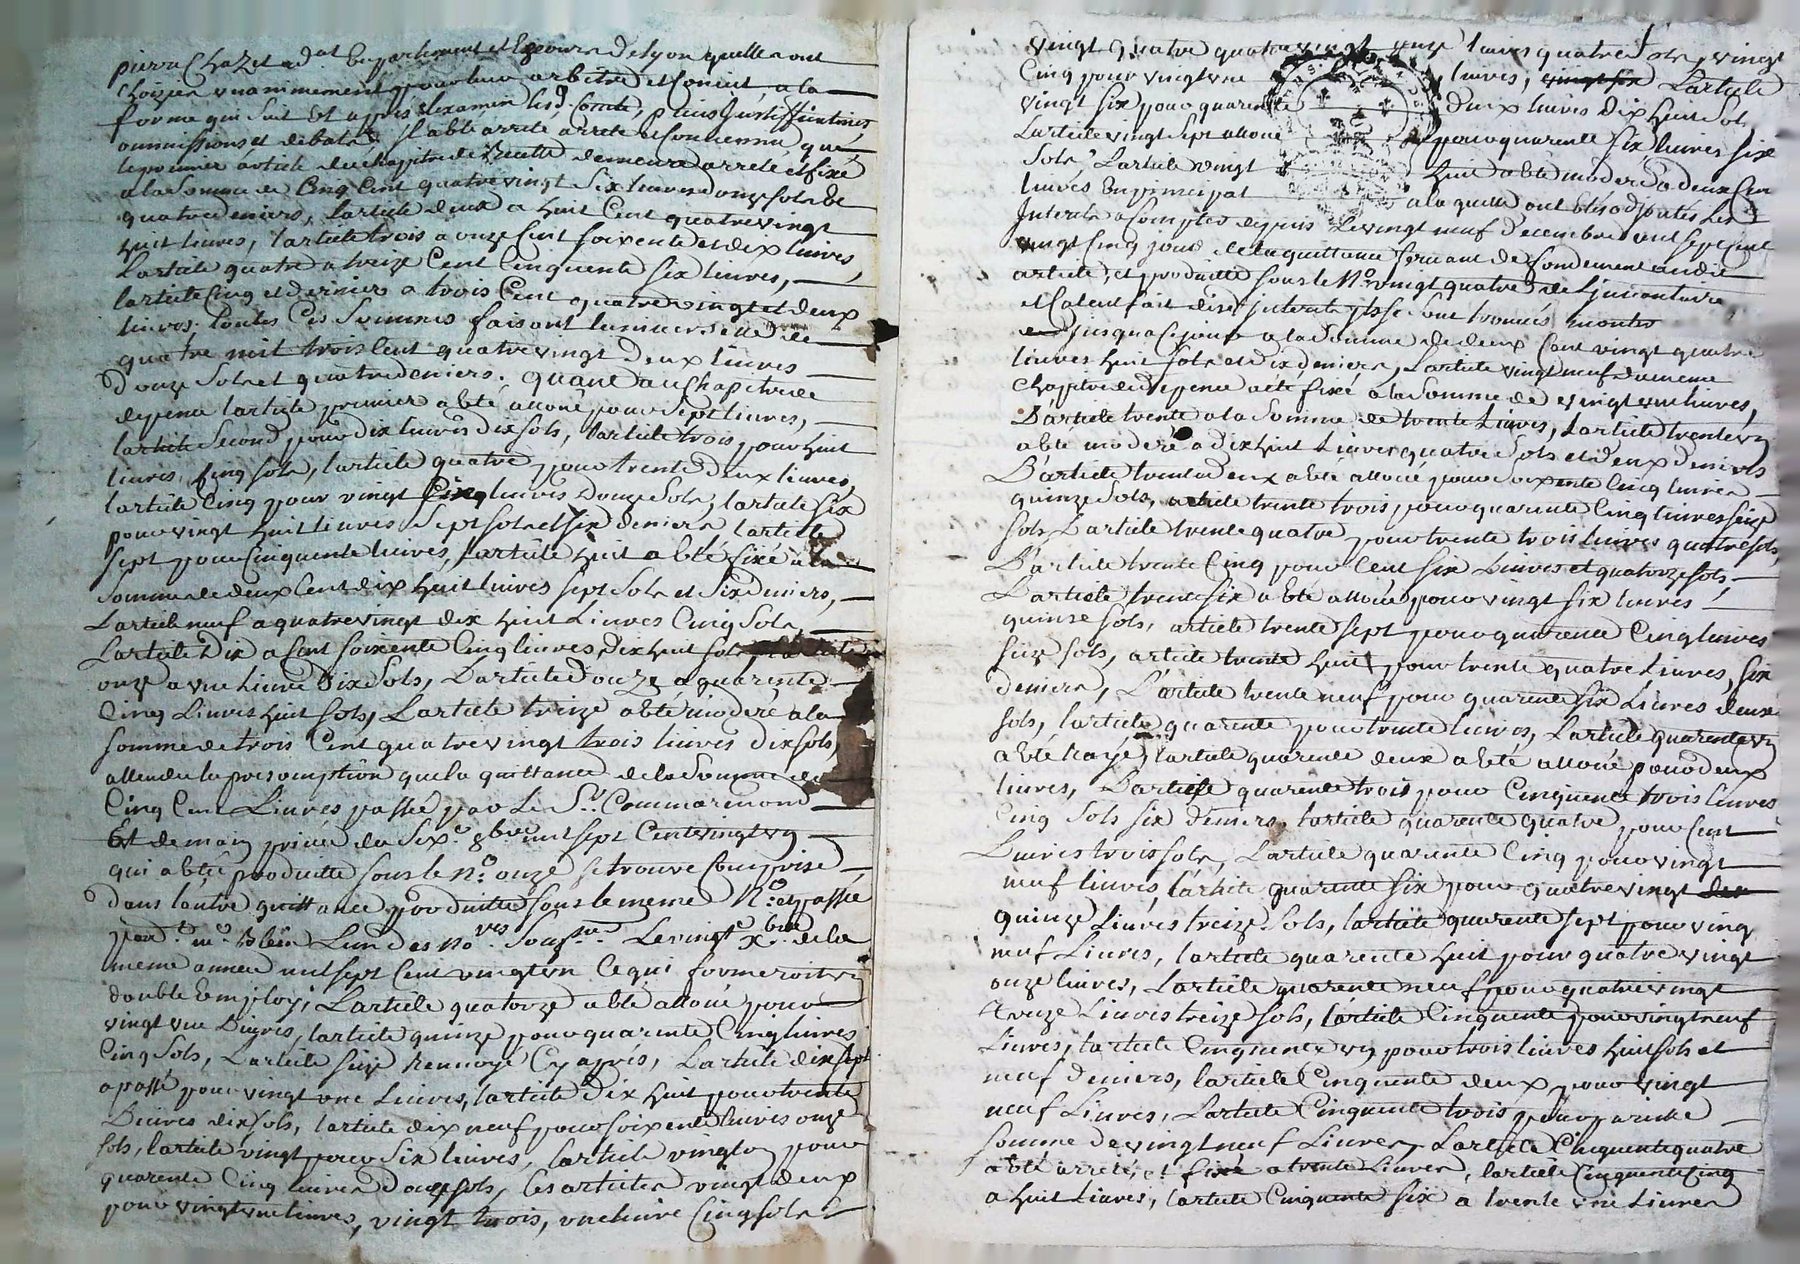 pierre Chazet adat en parlement et Ezcours de lyon quelle ont
choizier unanimement pour leur arbitre et Conseil a la
forme qui suit Et apres Lexamin
ommissions et debats, Il a été arrêté arrete et Convenu que
le premier article du chapitre de Recette demeure arreté et fixé
a la Somme de Cinq Cent quatre vingt Six livres onze sols et
quatre deniers, larticle deux a huit Cent quatre vingt
huit livres, larticle trois a onze Cent soixente et dix livres,
Larticle quatre a treize Cent Cinquente six livres,
larticle Cinq et dernier a trois Cent quatre vingt et deux
livres. toutes Ces Sommes faisont de
quatre mil trois Cent quatre vingt deux livres
d'onze Sols et quatre deniers. quant au Chapitre de
depence larticle premier a été alloué pour Sept livres,
larticle Second pour dix livres dix sols, larticle trois pour huit
livres Cinq sols, larticle quatre pour trente deux livres,
larticle Cinq pour vingt Cinq livres Douze Sols, larticle six
pour vingt huit livres Sept sols et six deniers larticle
sept pour Cinquente livres, larticle huit a été fixé a la
Somme de deux Cent dix huit livres sept Sols et Six deniers,
Larticle neuf a quatre vingt dix huit Livres Cinq Sols,
Larticle Dix a Cent soixente Cinq livres dix huit sols
onze a une livre dix Sols, Larticle douze a quarente
Cinq Livres huit sols, Larticle treize a été moderé a la
somme de trois Cent quatre vingt trois livres dix sols
attendu la presomption que la quittance de la Somme de
Cinq Cent Livres passée par Le Sr. Commarmond
Et de main privée du Six.e 8bre mil sept Cent vingt un
qui a été produitte sous le No. onze se trouve Comprise
dans lautre quittance produitte sous le meme No. et passée
pard.t me. Blein Lun des No.res Le vingt xbre de la
meme année mil sept Cent vingt un Ce qui formeroit un
double Employ; Larticle quatorze a été alloué pour
vingt une Livres, larticle quinze pour quarente Cinq livres
Cinq Sols, Larticle seize Renvoyé Cy apres, Larticle dix sept
a passé pour vingt une Livres, larticle dix huit pour trente
Livres dix sols, larticle dix neuf pour soixente livres onze
sols, larticle vingt pour Six livres, larticle vingt un pour
quarente Cinq livres douze sols, les articles vingt deux
pour vingt une livres, vingt trois, une livre Cinq sols et
vingt quatre quatre vingt onze livres quatre sols, vingt
Cinq pour vingt une livres, Larticle
vingt six pour quarente deux livres Dix huit Sols
Larticle vingt Sept alloué pour quarente six livres six
Sols, Larticle vingt huit a été moderé a deux Cent
livres En principal a laquelle ont été adjoutés les
Interets a Compter depuis Le vingt neuf Decembre mil sept Cent
vingt Cinq jour de la quittance servant de fondement audit
article, et produitte sous le No. vingt quatre de Linventaire
et Calcul fait desd. interets ils se sont trouvés monter
jusqua Ce jour a la Somme de deux Cent vingt quatre
livres huit sols et dix deniers, Larticle vingt neuf du meme
Chapitre de depence a été fixé a la Somme de vingt une livres,
Larticle trente a la Somme de trente Livres, Larticle trente un
a été moderé a dix huit Livres quatre Sols et deux deniers
Larticle trente deux a été alloué pour soixente Cinq livres
quinze Sols, article trente trois pour quarente Cinq livres seize
sols Larticle trente quatre pour trente trois livres quatre sols,
Larticle trente Cinq pour Cent six Livres et quatorze sols,
Larticle trente six a été alloué pour vingt six livres
quinse sols, article trente sept pour quarente Cinq livres
seize sols, article trente huit pour trente quatre Livres, six
deniers, Larticle trente neuf pour quarente six Livres deux
sols, larticle quarente pour trente livres, Larticle quarente un
a été Rayé, larticle quarente deux a été alloué pour deux
livres, Larticle quarente trois pour Cinquente trois livres
Cinq Sols six deniers, larticle quarente quatre pour Cent
Livres trois sols, Larticle quarente Cinq pour vingt
neuf livres, larticle quarente six pour quatre vingt
quinze Livres treize Sols, larticle quarente sept pour vingt
neuf Livres, larticle quarente huit pour quatre vingt
onze livres, Larticle quarente neuf pour quatre vingt
treize Livres treize sols, larticle Cinquente pour vingt neuf
Livres, larticle Cinquente un pour trois livres huit sols et
neuf deniers, larticle Cinquente deux pour vingt
neuf Livres, Larticle Cinquente trois pour pareille
somme de vingt neuf Livres, Larticle Cinquente quatre
a été arreté, et fixé a trente Livres, larticle Cinquente Cinq
a huit Livres, larticle Cinquente six a trente une Livres